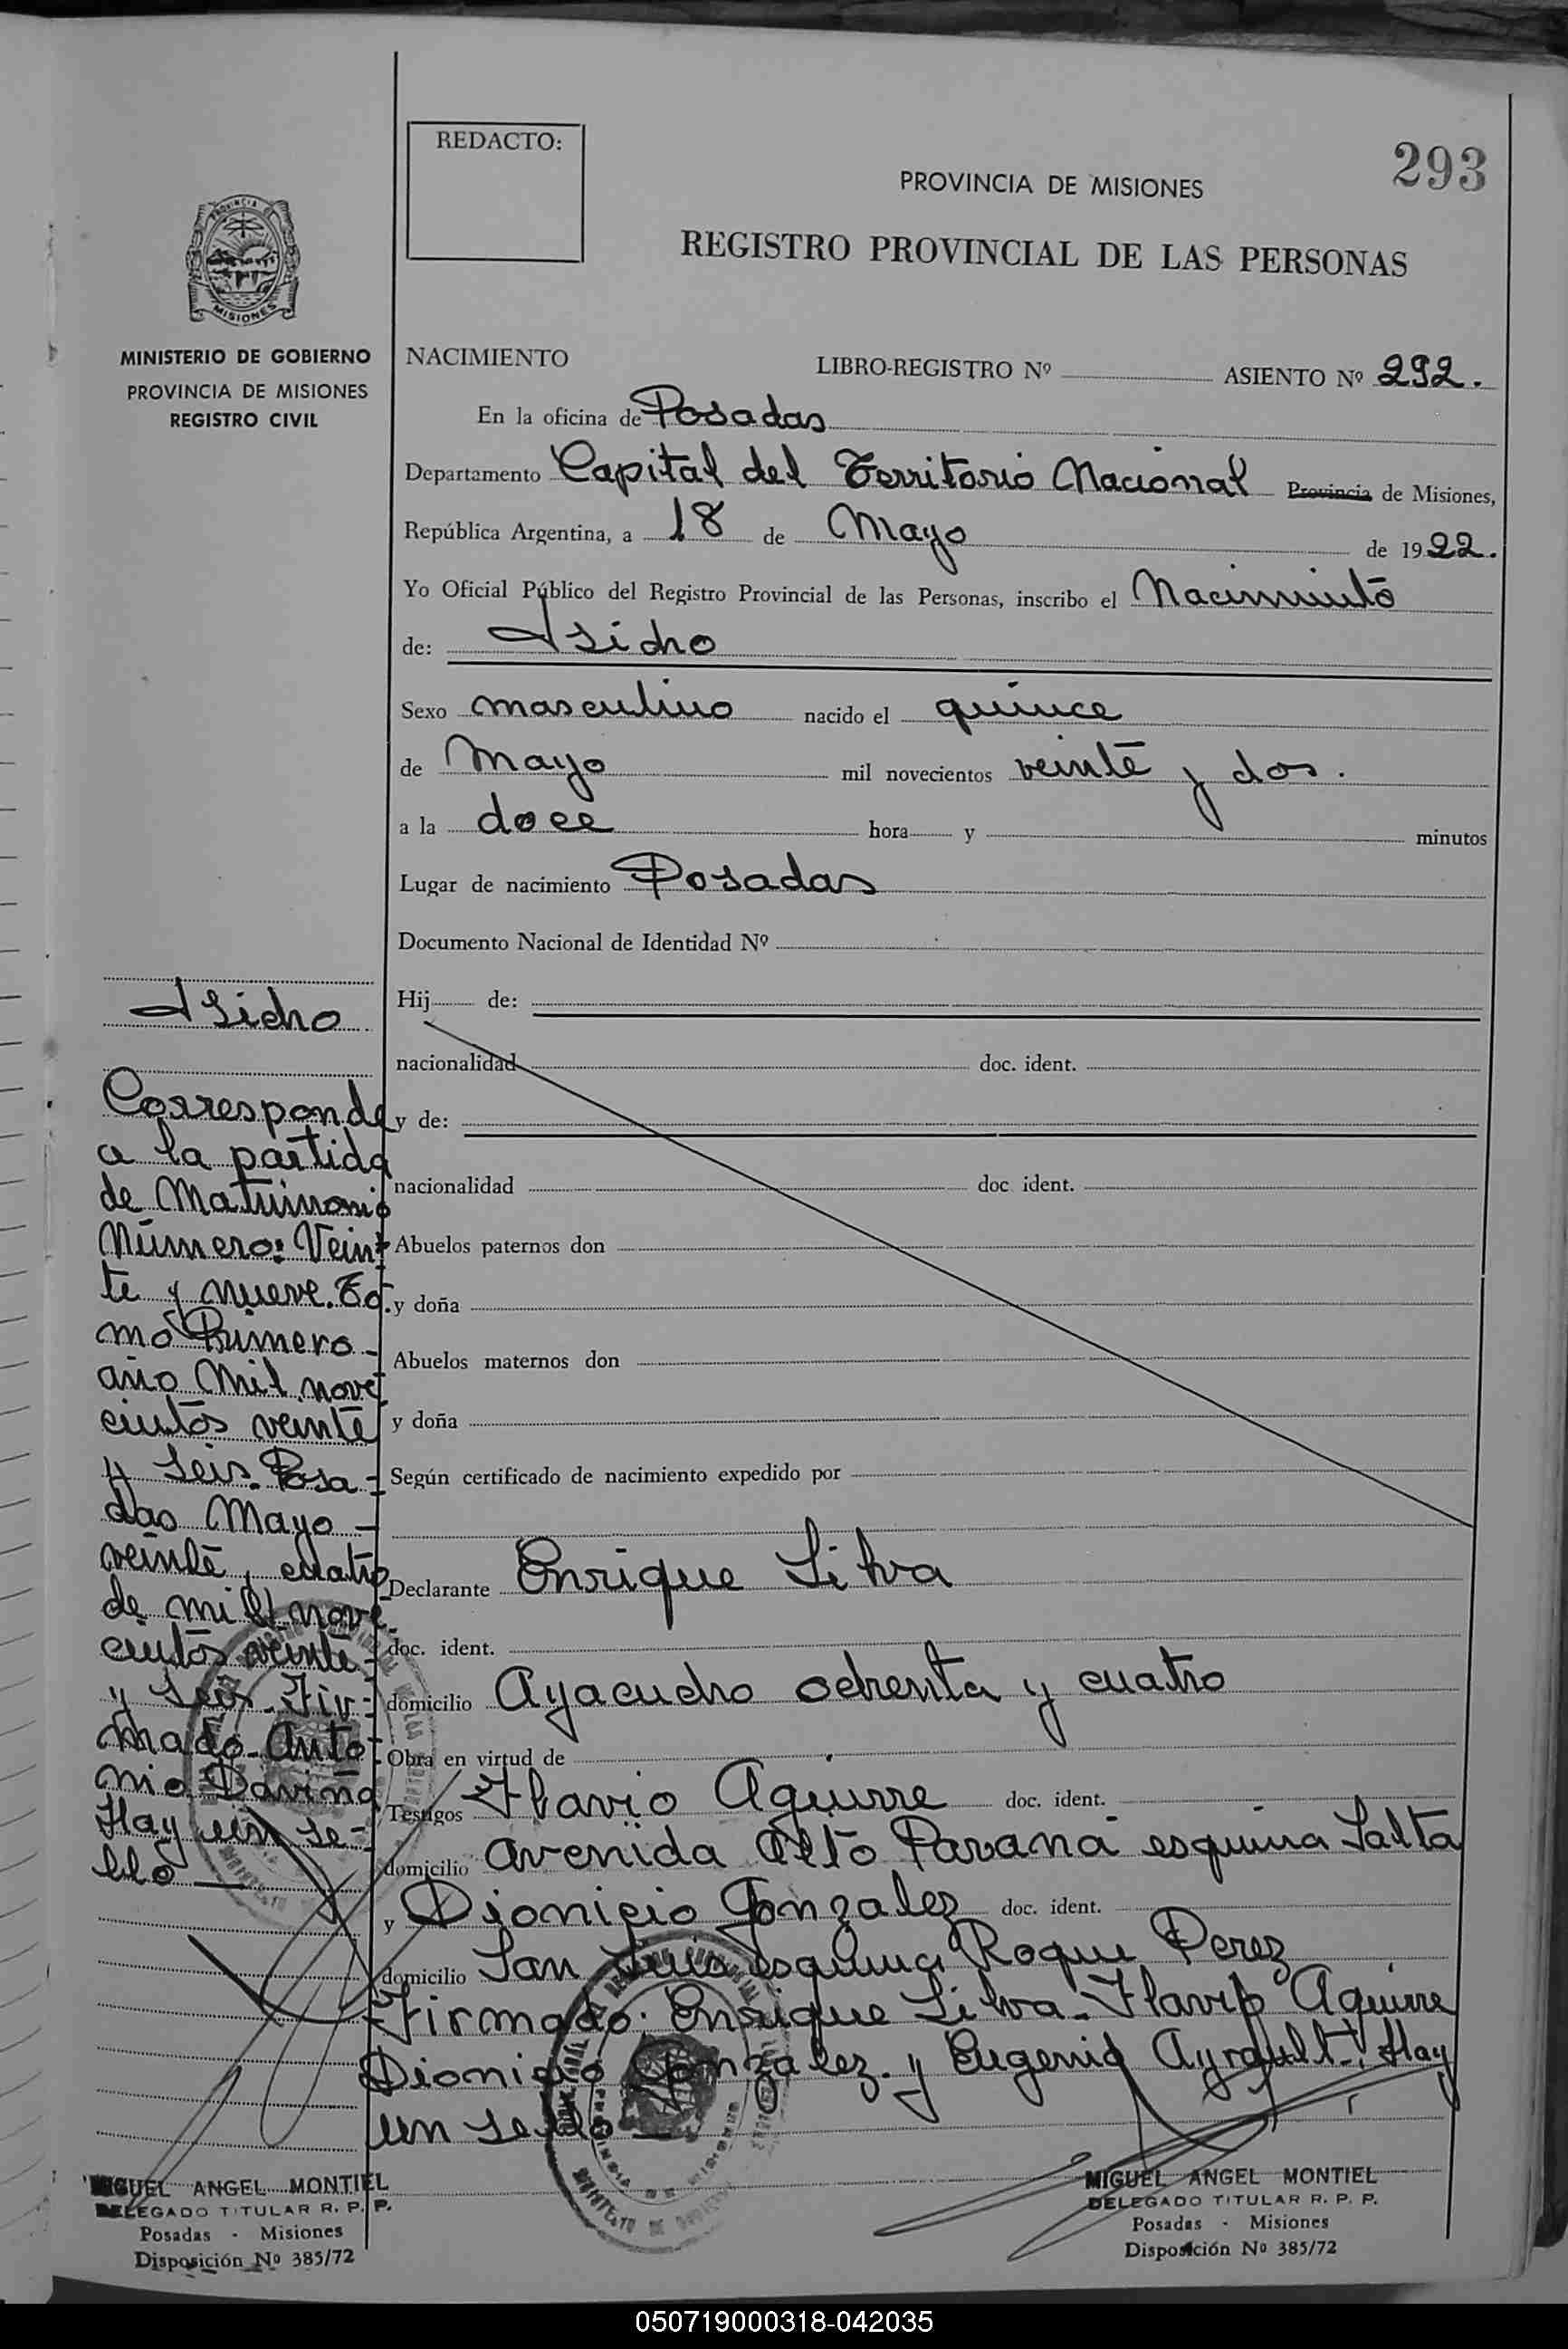 REDACTO:
293
PROVINCIA DE MISIONES
REGISTRO PROVINCIAL DE LAS PERSONAS
PROVINCIA DE
MISIONES
MINISTERIO DE GOBIERNO
PROVINCIA DE MISIONES
REGISTRO CIVIL
NACIMIENTO LIBRO-REGISTRO Nº ASIENTO Nº 292.
En la oficina de Posadas
Departamento Capital del Territorio Nacional Provincia de Misiones,
República Argentina, a 18 de Mayo de 1922.
Yo Oficial Público del Registro Provincial de las Personas, inscribo el Nacimiento
de: Isidro
Sexo masculino nacido el quince
de Mayo mil novecientos veinte y dos.
a la doce hora y minutos
Lugar de nacimiento Posadas
Documento Nacional de Identidad Nº
Hij de:
nacionalidad doc. ident.
y de:
nacionalidad doc. ident.
Abuelos paternos don
y doña
Abuelos maternos don
y doña
Según certificado de nacimiento expedido por
Declarante Enrique Silva
doc. ident.
domicilio Ayacucho ochenta y cuatro
Obra en virtud de
Testigos Flavio Aguirre doc. ident.
domicilio Avenida Alto Parana esquina Salta
y Dionicio Gonzalez doc. ident.
domicilio San Luis esquina Roque Perez
Firmado: Enrique Silva - Flavio Aguirre
Dionicio Gonzalez y Eugenio Ayrault. Hay
un sello
Isidro
Corresponde
a la partida
de Matrimonio
Número: Vein
te y nueve. To
mo Primero
año Mil nove
cientos veinte
y seis. Posa -
das Mayo -
veinte, cuatro
de mil nove
cientos veinte
y seis. Fir -
mado. Anto
nio Davina
Hay un se -
llo
MIGUEL ANGEL MONTIEL
DELEGADO TITULAR R. P. P.
Posadas - Misiones
Disposición Nº 385/72
MIGUEL ANGEL MONTIEL
DELEGADO TITULAR R. P. P.
Posadas - Misiones
Disposición Nº 385/72
050719000318-042035